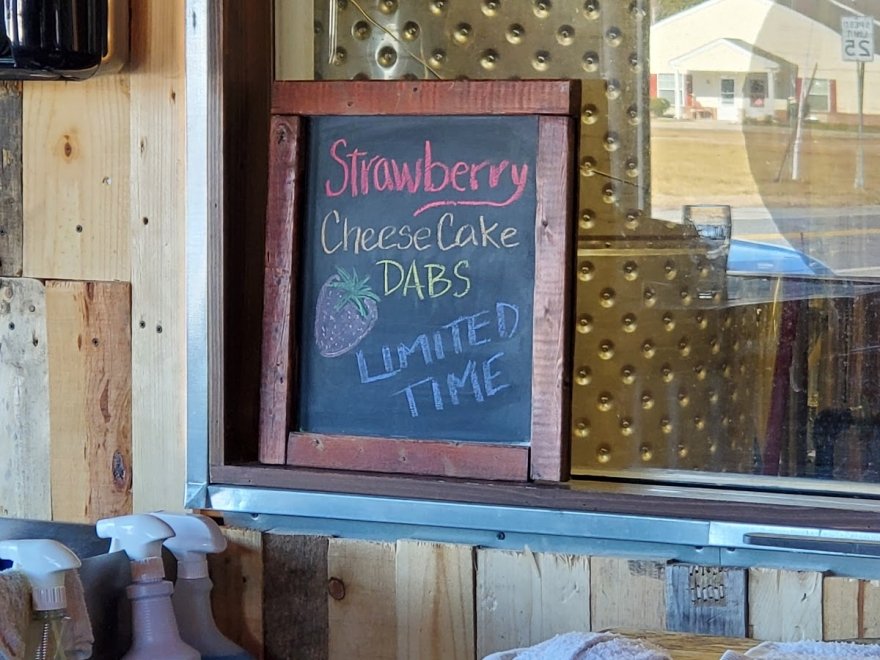 Strawberry
CheeseCake
DABS
LIMITED
TIME
SPEED
LIMIT
25